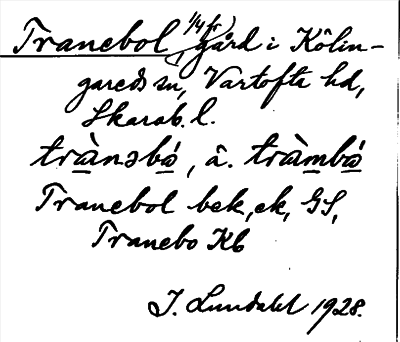 Tranebol (1/4 fr) gård i Kölin-
gareds sn, Vartofta hd,
Skarab. l.
trànəbó, ä. tràmbó
Tranebol bek, ek, GS,
Tranebo Kb
J. Lundahl 1928.